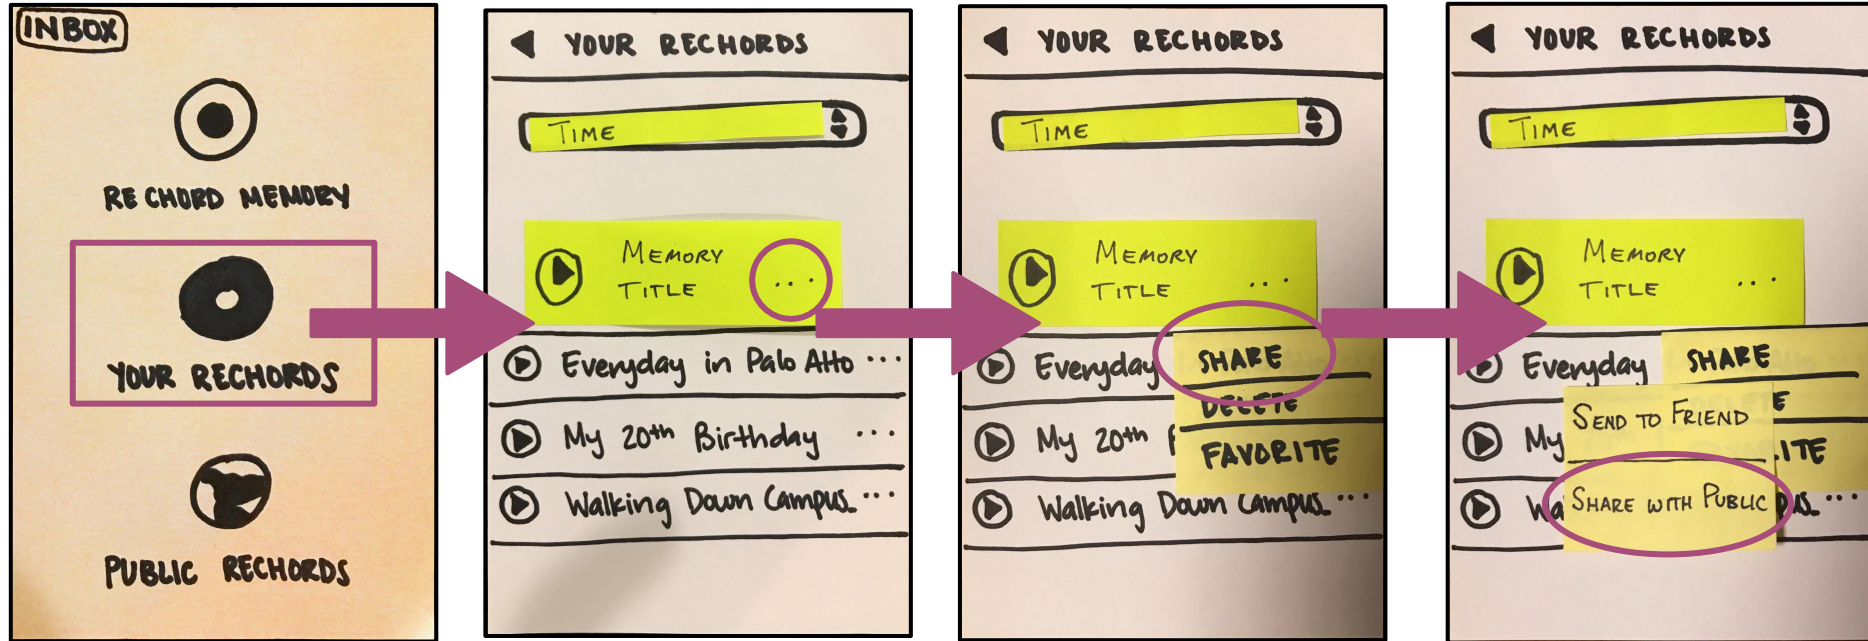 INBOX
RECHORD MEMORY
YOUR RECHORDS
PUBLIC RECHORDS
YOUR RECHORDS
TIME
MEMORY
TITLE ...
Everyday in Palo Alto ...
My 20th Birthday ...
Walking Down Campus ...
YOUR RECHORDS
TIME
MEMORY
TITLE ...
Everyday
SHARE
DELETE
My 20th
FAVORITE
Walking Down Campus ...
YOUR RECHORDS
TIME
MEMORY
TITLE ...
Everyday
SHARE
SEND TO FRIEND
My
SHARE WITH PUBLIC